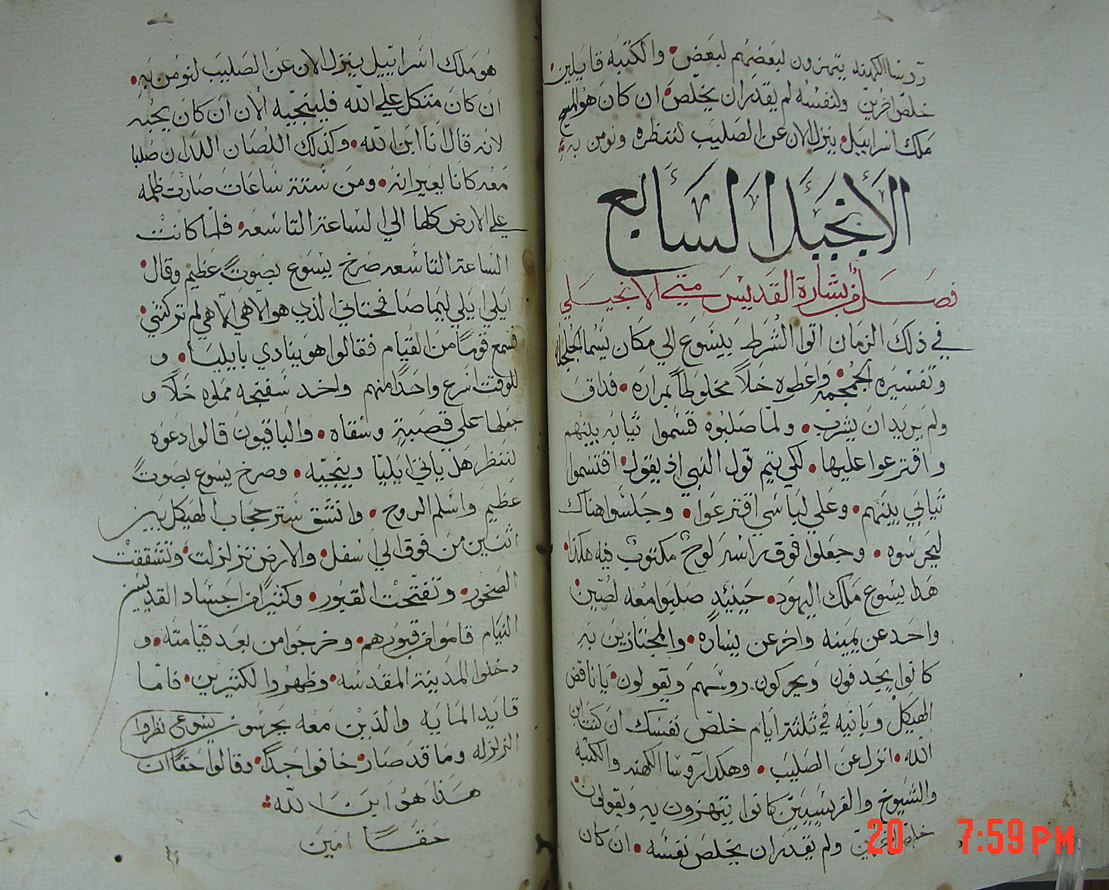 روسا الكهنه يتهزون لبعضهم لبعض • والكتبه قايلين
خلص اخرين ولنفسه لم يقدر ان يخلص • ان كان هو المسيح
ملك اسراييل • ينزل الان عن الصليب لننظره ونومن به
الأنجيل السابع
فصل من بشارة القديس متي الانجيلي
في ذلك الزمان اتوا الشرط بيسوع الي مكان يسما الجلجله
وتفسيره الجمجمه • واعطوه خلاً مخلوطاً بمراره • فداق
ولم يريد ان يشرب • ولما صلبوه قسموا ثيابه بينهم
واقترعوا عليها • لكي يتم قول النبي اذ يقول • اقتسموا
ثيابي بينهم • وعلي لباسي اقترعوا • وجلسوا هناك
ليحرسوه • وجعلوا فوق راسه لوح مكتوب فيه هكذا
هذا يسوع ملك اليهود • حينيذٍ صلبوا معه لصين
واحد عن يمينه واخر عن يساره • والمجتازين به
كانوا يجدفون ويحركون روسهم ويقولون • يا ناقض
الهيكل وبانيه في تلتة ايام خلص نفسك ان كنت ابن
الله • انزل عن الصليب • وهكذا روسا الكهنه والكتبه
والشيوخ والفريسيين كانوا يتهزون به ويقولون
خلص اخرين ولم يقدر ان يخلص نفسه • ان كان
هو ملك اسراييل ينزل الان عن الصليب لنومن به •
ان كان متكل علي الله فلينجيه الان ان كان يحبه
لانه قال انا ابن الله • وكذلك اللصان اللذان صلبا
معه كانا يعيرانه • ومن ستة ساعات صارت ظلمه
علي الارض كلها الي الساعة التاسعه • فلما كانت
الساعة التاسعه صرخ يسوع بصوتٍ عظيم وقال •
ايلي ايلي ليما صافختاني الذي هو الاهي الاهي لم تركتني •
فسمع قوماً من القيام فقالوا هو ينادي باييليا • و
للوقت اسرع واحداً منهم واخد سفنجه مملوه خلاً و
جعلها علي قصبةٍ وسقاه • والباقيون قالوا دعوه
لننظر هل ياتي ايليا وينجيه • وصرخ يسوع بصوتٍ
عظيم واسلم الروح • وانشق ستر حجاب الهيكل بين
اثنين من فوق الي اسفل • والارض تزلزلت • وتشققت
الصخور • وتفتحت القبور • وكثير من اجساد القديسين
النيام قاموا من قبورهم • وخرجوا من بعد قيامته • و
دخلوا المدينة المقدسه • وظهروا لكثيرين • فاما
قايد المايه والذين معه يحرسون يسوع نظروا
الزلزله وما قد صار • خافوا جداً • وقالوا حقاً ان
هذا هو ابن الله •
حقاً امين
20 7:59 PM